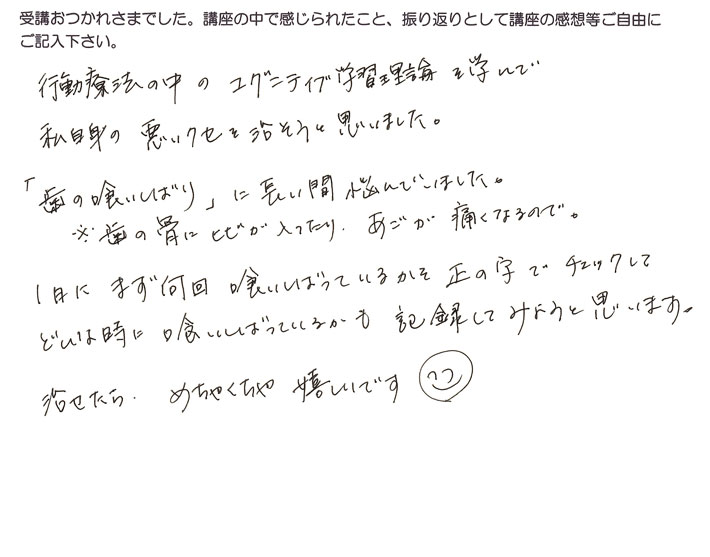 受講おつかれさまでした。講座の中で感じられたこと、振り返りとして講座の感想等ご自由に
ご記入下さい。
行動療法の中の コグニティブ学習理論 を学んで
私自身の 悪いクセを治そうと思いました。
「歯の喰いしばり」に長い間 悩んでいました。
※歯の骨にヒビが入ったり、あごが痛くなるので。
1日に まず何回 喰いしばっているかを 正の字で チェックして
どんな時に 喰いしばっているかも 記録して みようと思います。
治せたら、めちゃくちゃ 嬉しいです